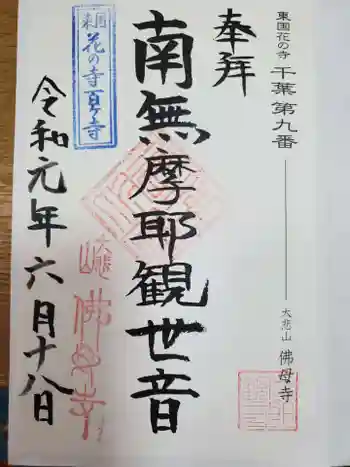 東国花の寺 千葉 第九番
大悲山 佛母寺
奉拝
南無摩耶観世音
東国
花の寺百ヶ寺
令和元年六月十八日
大悲山
佛母寺